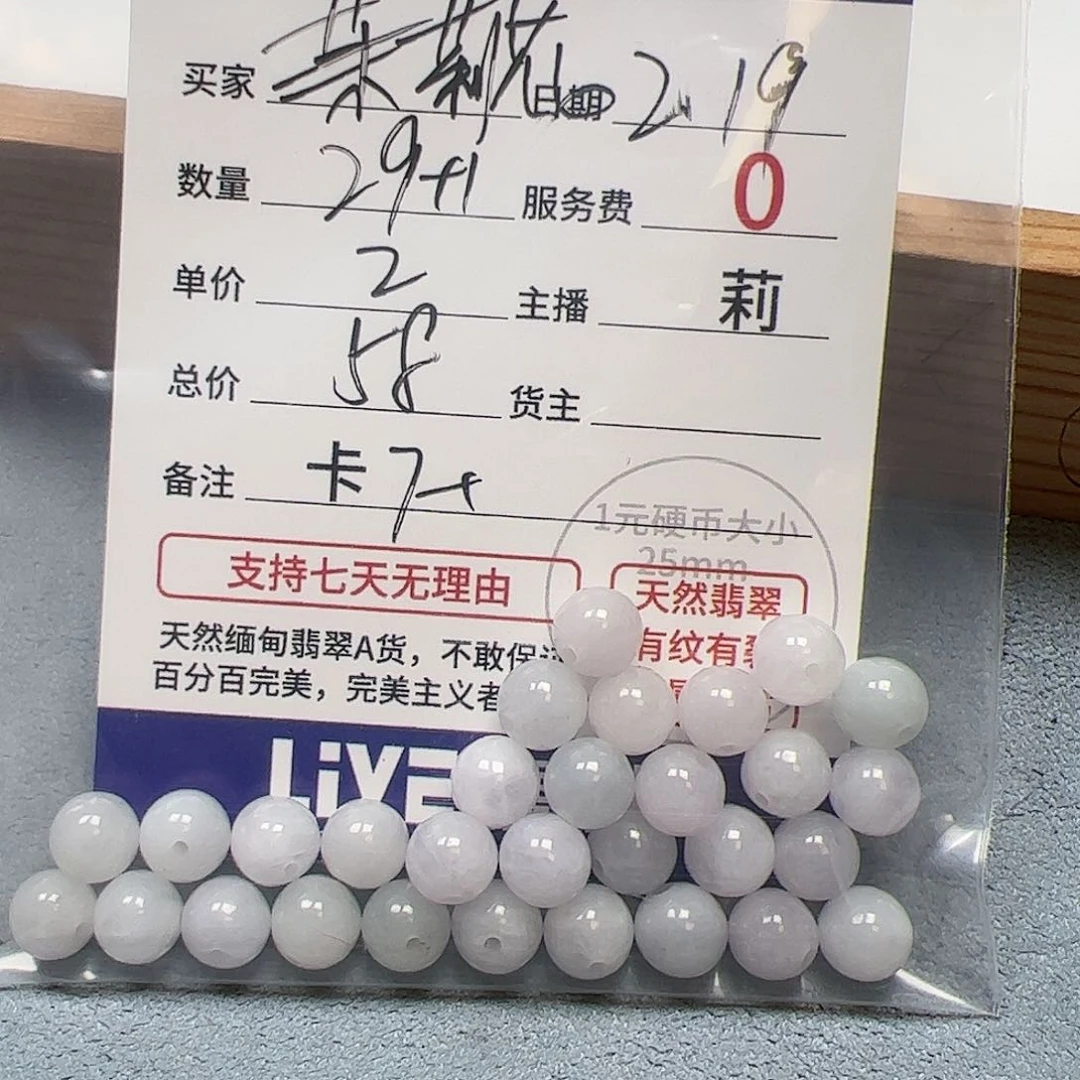 买家 茉莉花 日期 2.19
数量 29+1 服务费 0
单价 2 主播 莉
总价 58 货主
备注 卡7+
1元硬币大小
25mm
支持七天无理由
天然翡翠
有纹有
天然缅甸翡翠A货，不敢保
百分百完美，完美主义者
LiVE